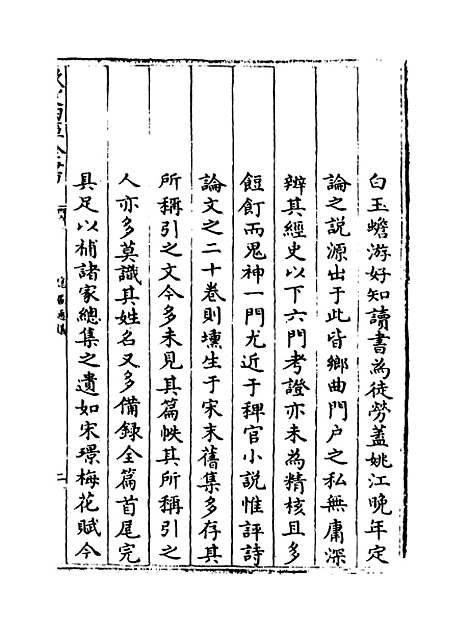 白玉蟾游好知讀書為徒勞蓋姚江晚年定
論之説源出于此皆鄉曲門户之私無庸深
辨其經史以下六門考證亦未為精核且多
餖飣而鬼神一門尤近于稗官小説惟評詩
論文之二十卷則壎生于宋末舊集多存其
所稱引之文今多未見其篇帙其所稱引之
人亦多莫識其姓名又多備録全篇首尾完
具足以補諸家總集之遺如宋璟梅花賦今
隱居通議
二